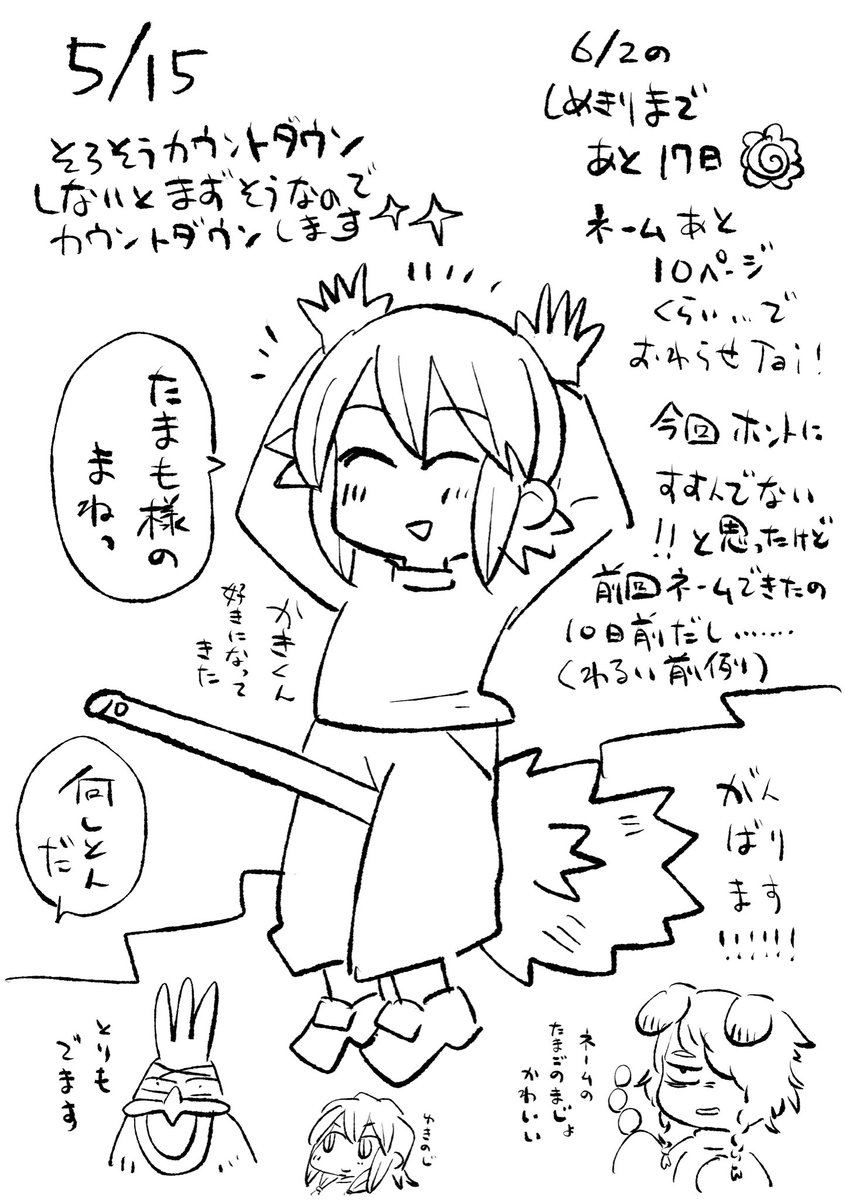 5/15
そろそろカウントダウン
しないとまずそうなので
カウントダウンします
6/2の
しめきりまで
あと17日
ネームあと
10ページ
くらい…で
おわらせTai!
今回ホントに
すすんでない
!!と思ったけど
前回ネームできたの
10日前だし……
(わるい前例)
たまも様の
まねっ
かきくん
好きになって
きた
何しとん
だ
がん
ばり
ます
!!!!!!
とりも
でます
ゆきのじ
ネームの
たまごのまじょ
かわいい